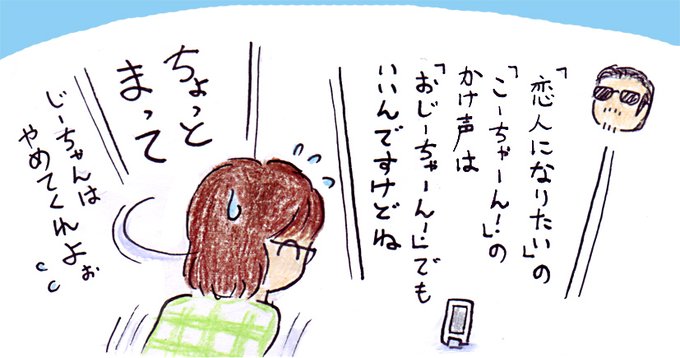 「恋人になりたい」の
「こーちゃーん！」の
かけ声は
「おじーちゃーん！」でも
いいんですけどね
ちょっと
まって
じーちゃんは
やめてくれよぉ